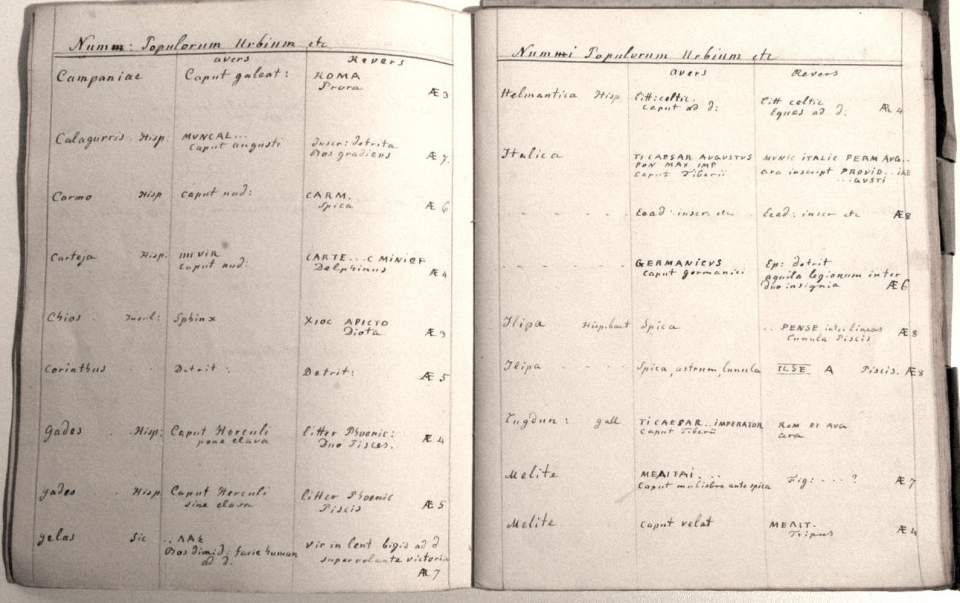 Numm: Populorum Urbium etc
avers Revers
Campaniae Caput galeat: ROMA
Prora Æ 3
Calagurris Hisp. MVNCAL... Inscr: detrita
Caput augusti Bos gradiens Æ 7.
Carmo Hisp Caput nud: CARM.
Spica Æ 6
Carteja Hisp. IIIIVIR CARTE...C MINICF
Caput nud: Delphinus Æ 4
Chios Insul: Sphinx ΧΙΟC ΑΡΙCΤΟ
Diota Æ 3
Corinthus Detrit: Detrit: Æ 5
Gades Hisp: Caput Herculi litter Phoenic:
pone clava Duo Pisces. Æ 4
Gades Hisp Caput Herculi litter Phoenic
sine clava Piscis Æ 5
Gelas Sic ..ΛΑΣ Vir in lent bigis ad d
Bos dimid: facie human supervolante victoria
ad d. Æ 7
Nummi Populorum Urbium etc
avers Revers
Helmantica Hisp litt: celtic. litt celtic
Caput ad d: Eques ad d. Æ 4
Italica TI CAESAR AUGUSTUS MVNIC ITALIC PERM AVG..
PON MAX IMP ara inscript PROVID...IAE
Caput Tiberii ...GVSTI
Ead: inscr. etc Ead: inscr etc Æ 8
GERMANICVS Ep: detrit
Caput germanici aquila legionum inter
duo insignia Æ 6
Ilipa Spica .. PENSE inter lineas Æ 8
Lunula Piscis
Ilipa Spica, astrum, lunula ILSE A Piscis. Æ 8
Lugdun: gall TI CAESAR...IMPERATOR ROM ET AVG
Caput Tiberii ara
Melite ΜΕΛΙΤΑΙ... Fig: ...? Æ 7
Caput muliebre ante spica
Melite Caput velat ΜΕΛΙΤ.
Tripus Æ 4